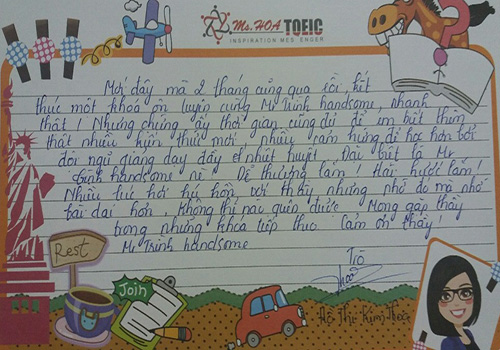 Ms. HOA TOEIC
INSPIRATION MESSENGER
Mới đây mà 2 tháng cũng qua rồi, kết
thúc một khoá ôn luyện cùng Mr Trịnh handsome, nhanh
thật! Nhưng chừng ấy thời gian cũng đủ để em biết thêm
thật nhiều kiến thức mới, nhiều cảm hứng để học hơn bởi
đội ngũ giảng dạy đầy nhiệt huyết. Đặc biệt là Mr
Trịnh handsome nè. Dễ thương lắm! Hài hước lắm!
Nhiều lúc hơi hư hơn với thầy nhưng nhờ đó mà nhớ
bài dai hơn, không thì nào quên được. Mong gặp thầy
trong những khoá tiếp theo. Cảm ơn thầy!
Mr Trịnh handsome
Rest
Join
Hồ Thị Kim Thoa